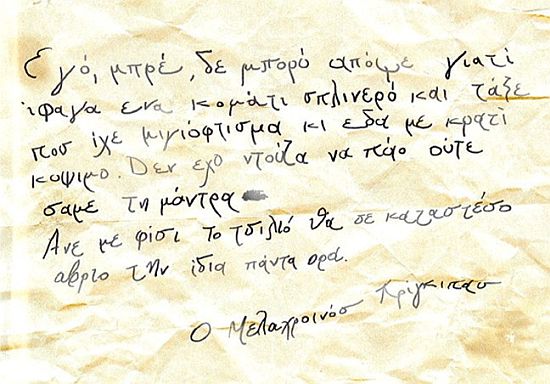 Εγό, μπρέ, δε μπορό απόψε γιατί
ίφαγα ενα κομάτι σπλινερό και τάζε
που ίχε μιγιόφτισμα κι εδα με κρατί
κοψιμο. Δεν εχο ντούζα να πάο ούτε
σαμε τη μάντρα
Ανε με φίσι το τσιλιό θα σε καταστέσο
αβριο την ίδια πάντα ορά.
Ο Μελαχροινόσ Κρίγκιπασ